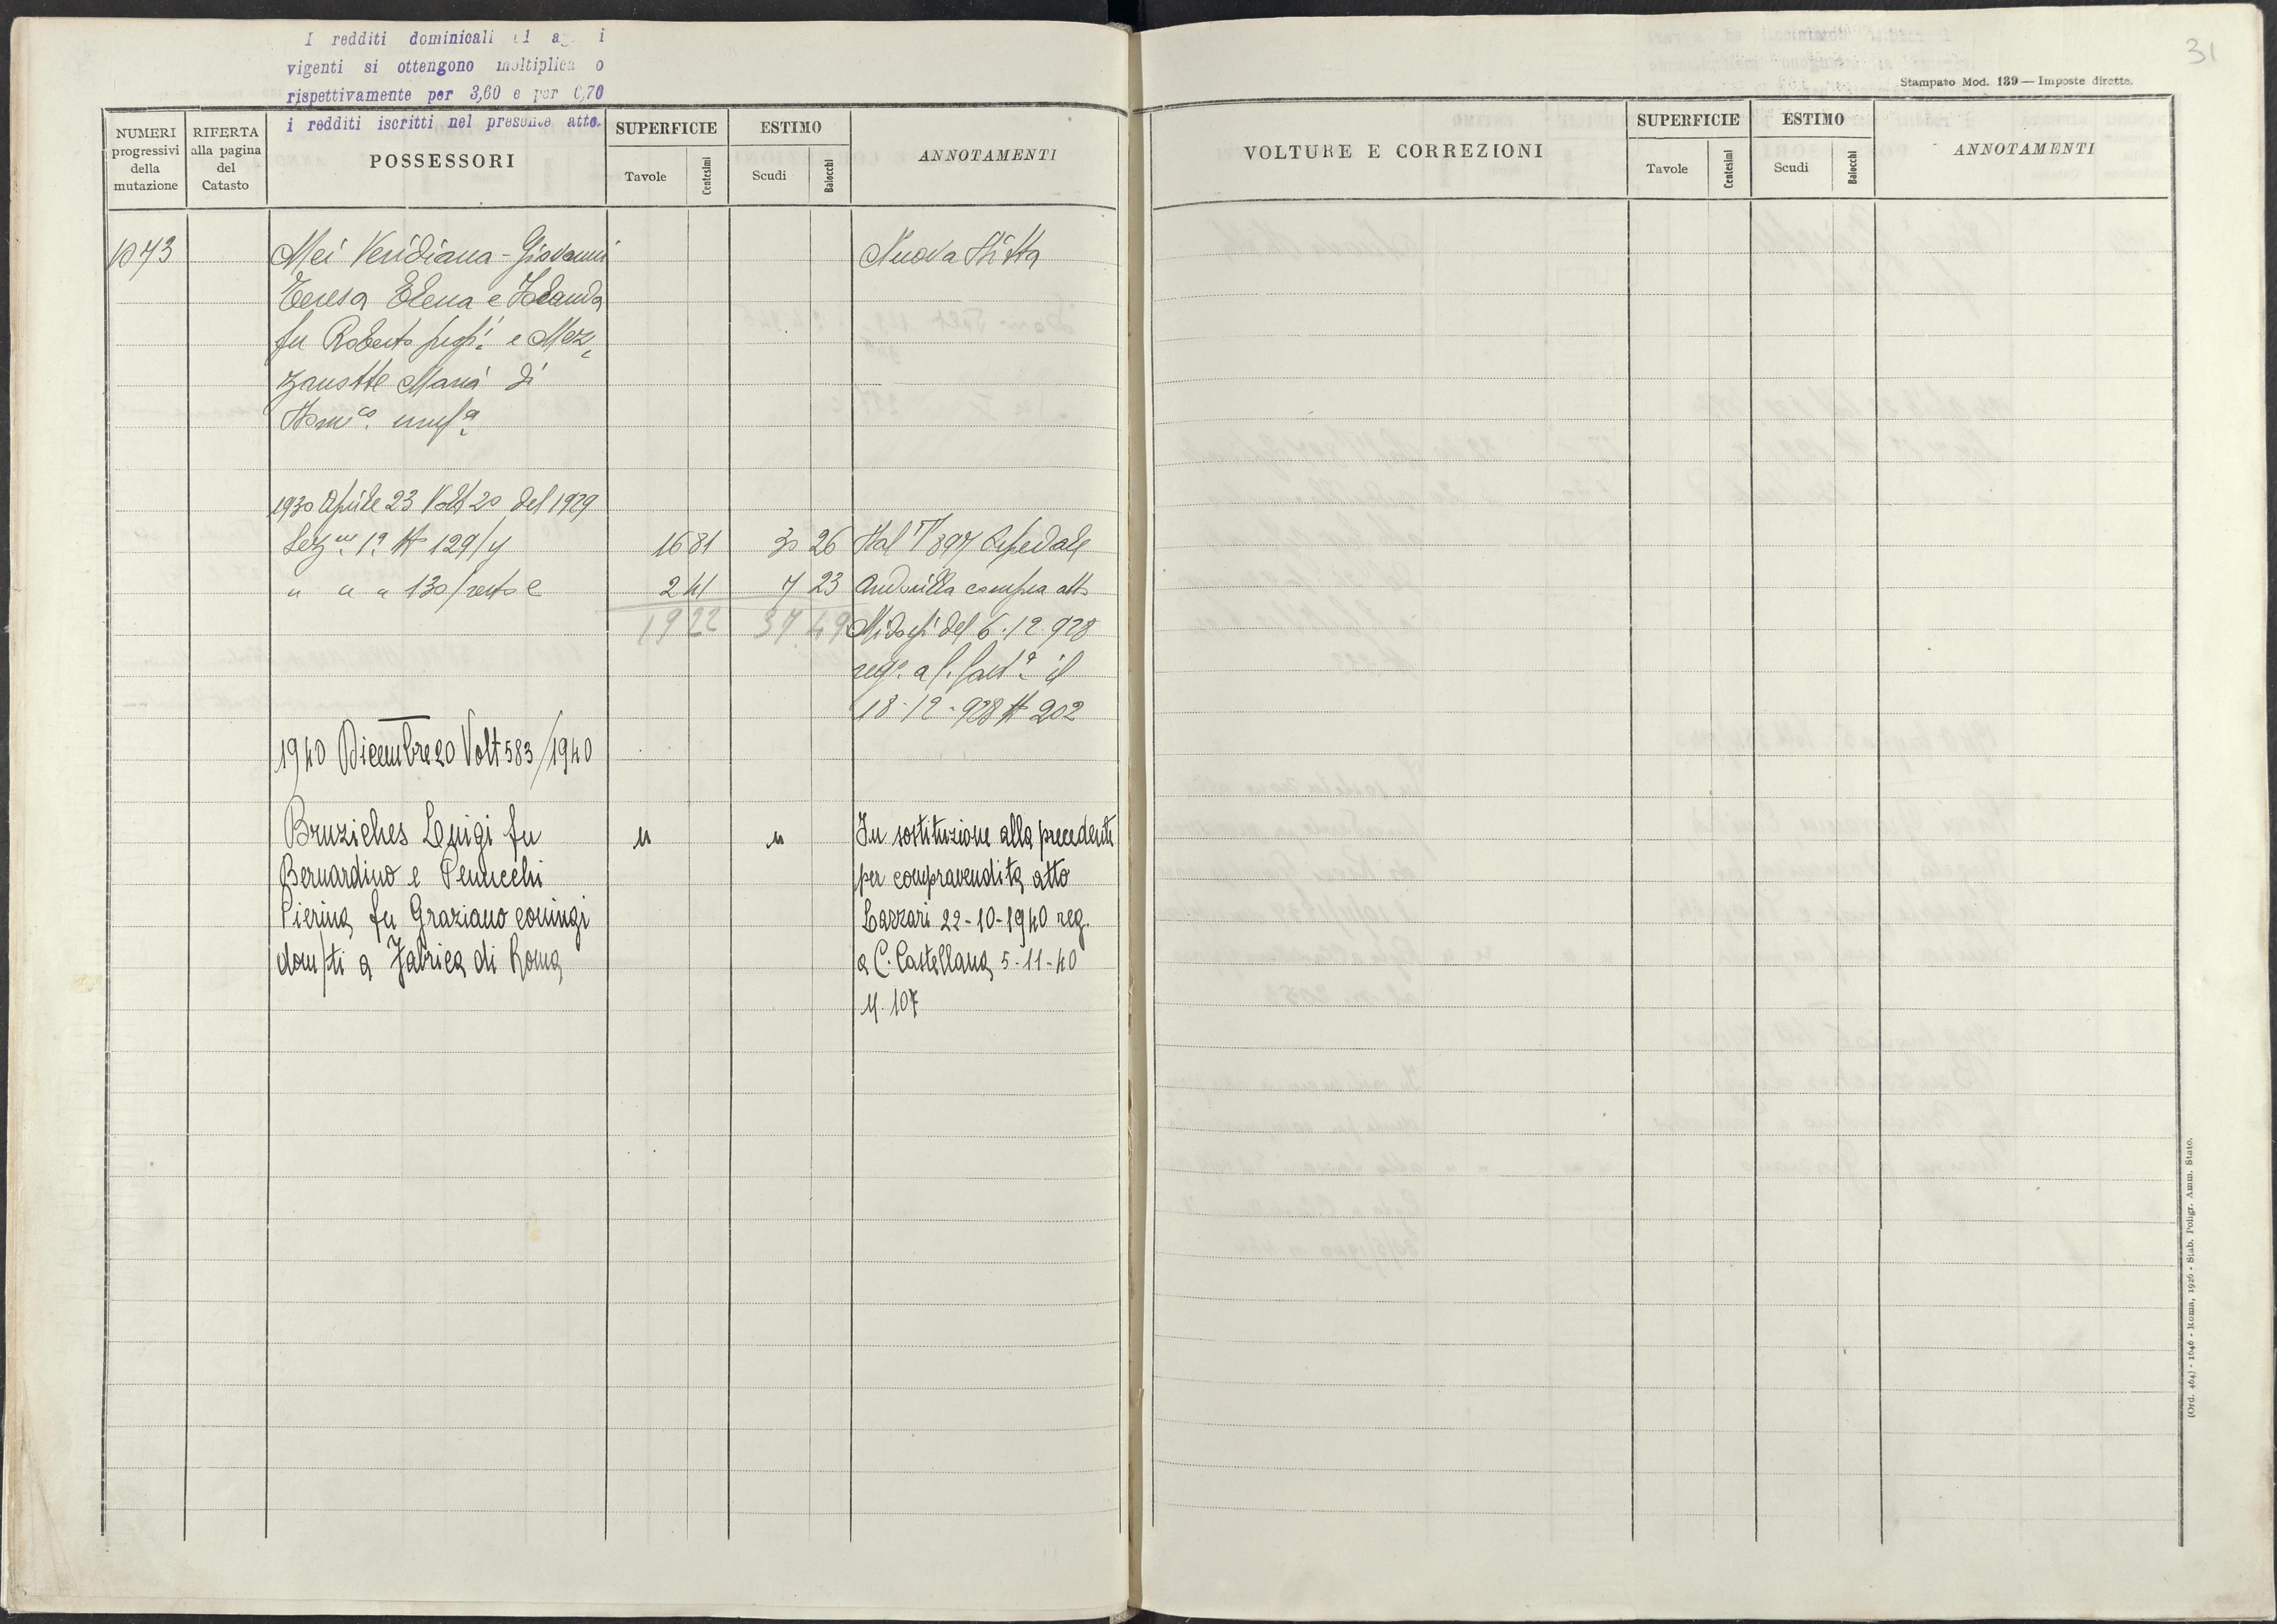 I redditi dominicali
vigenti si ottengono
rispettivamente per 3,60 e per 0,70
i redditi iscritti nel presente atto.
31
Stampato Mod. 139 — Imposte dirette.
NUMERI progressivi della mutazione
RIFERTA alla pagina del Catasto
POSSESSORI
SUPERFICIE
Tavole
Centesimi
ESTIMO
Scudi
Baiocchi
ANNOTAMENTI
VOLTURE E CORREZIONI
SUPERFICIE
Tavole
Centesimi
ESTIMO
Scudi
Baiocchi
ANNOTAMENTI
1073 Mei Veridiana - Giovanni Nuova Ditta
Teresa Elena e Iolanda
fu Roberto e Mez
Maria di
1930 Aprile 23 Volt 20 del 1929
Sez 1a N 129/y 16 81 30 26 Dal 897 Ospedale
" " " 130/resto 2 41 7 23 compra atto
19 22 37 49 del 6.12.928
il
18-12-928 N 202
1940 Dicembre 20 Volt 583/1940
Bruziches Luigi fu " " In sostituzione alla precedente
Bernardino e Penucchi per compravendita atto
Pierina fu Graziano coniugi Lazzari 22-10-1940 reg.
dom/ti a Fabrica di Roma a C. Castellana 5-11-40
N. 107
(Ord. 464) - 1646 - Roma, 1926 - Stab. Poligr. Amm. Stato.